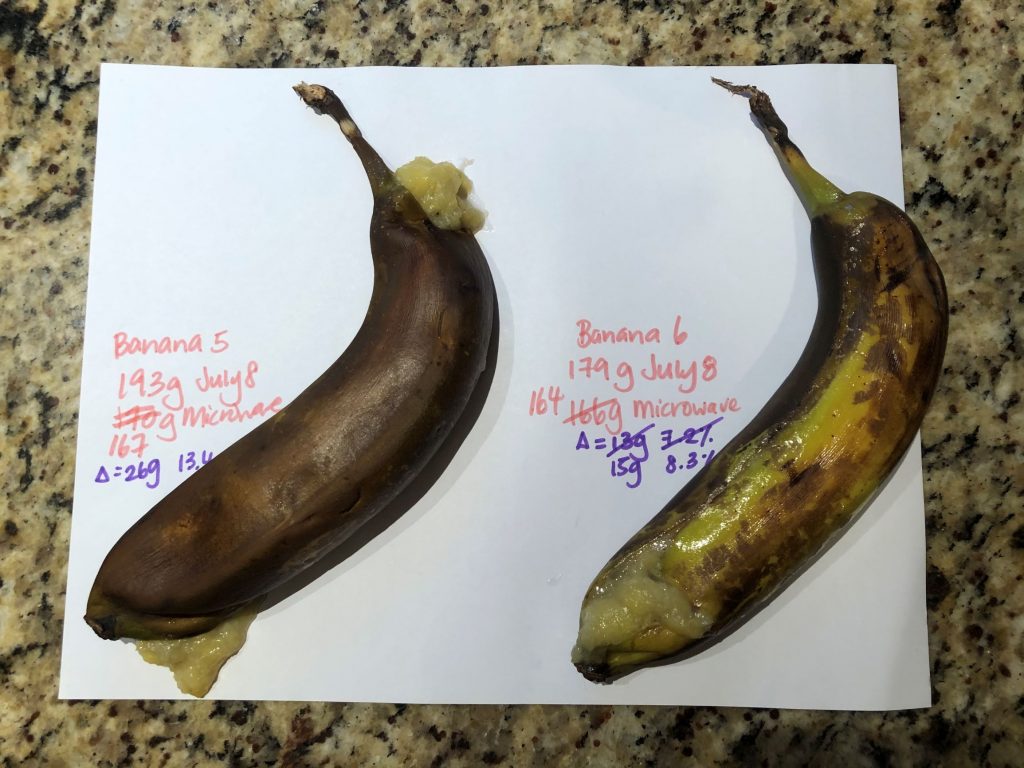 Banana 5
193g July 8
170g Microwave
167
Δ=26g 13.4
Banana 6
179g July 8
164 166g Microwave
Δ=13g 7.2%
15g 8.3%